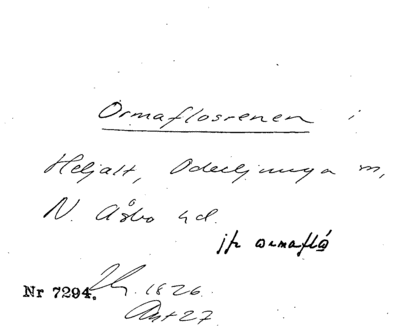 Ormaflosrenen i
Heljalt, Oderljunga m,
N. Åsbo hd.
jfr ormaflo
Nr 7294. 1826
Akt 27